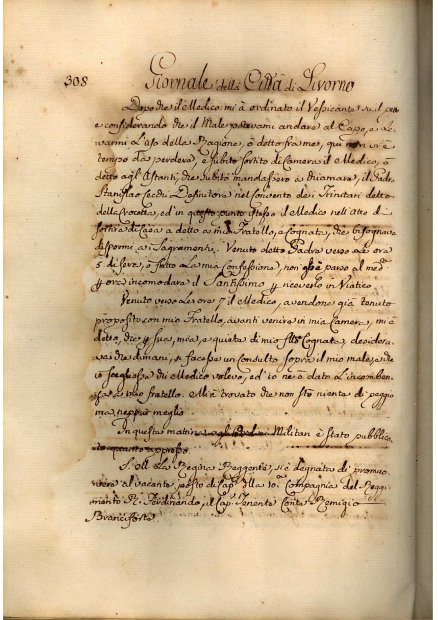 308 Giornale della Città di Livorno
Dopo che il Medico mi à ordinato il Vessicante sul
e considerando che il Male potevami andare al Capo, e Le-
varmi L'uso della Ragione, ò detto fra me, qui non vi è
tempo da perdere, e subito sortito di Camera il Medico, ò
detto agl'Astanti, che subito mandassero a chiamare, il Padr.
Stanislao Definitore nel Convento dei Trinitari detto
della Crocetta, ed in questo punto istesso il Medico nell'atto di
sortire di Casa a detto a mio Fratello, e Cognata, che bisognava
dispormi ai Sagramenti. Venuto detto Padre verso Le ora
5 di sera, ò fatto La mia Confessione, non è parso al med.
ora incomodare il Santissimo riceverlo in Viatico.
Venuto verso Le ore 7 il Medico, avendone già tenuto
proposito con mio Fratello, avanti venire in mia Camera, mi è
detto, che sua, mia, e quiete di mio Cognata, desidera-
vai che dimani, si facesse un Consulto sopra il mio male, e che
io che Medico volevo, ed io ne ò dato L'incomben-
sa a mio fratello. Mi à trovato che non stò nienta di peggio
ma neppur meglio.
In questa mattina Militari è stato pubblic-
quanto appresso
S. M. La Regina Reggente, si è degnata di promuo-
vere al vacante, posto di Cap. della 10.a Compagnia del Reggi-
mento R. Ferdinando, il Cap. Tenente Conte Remigio
Branciforte